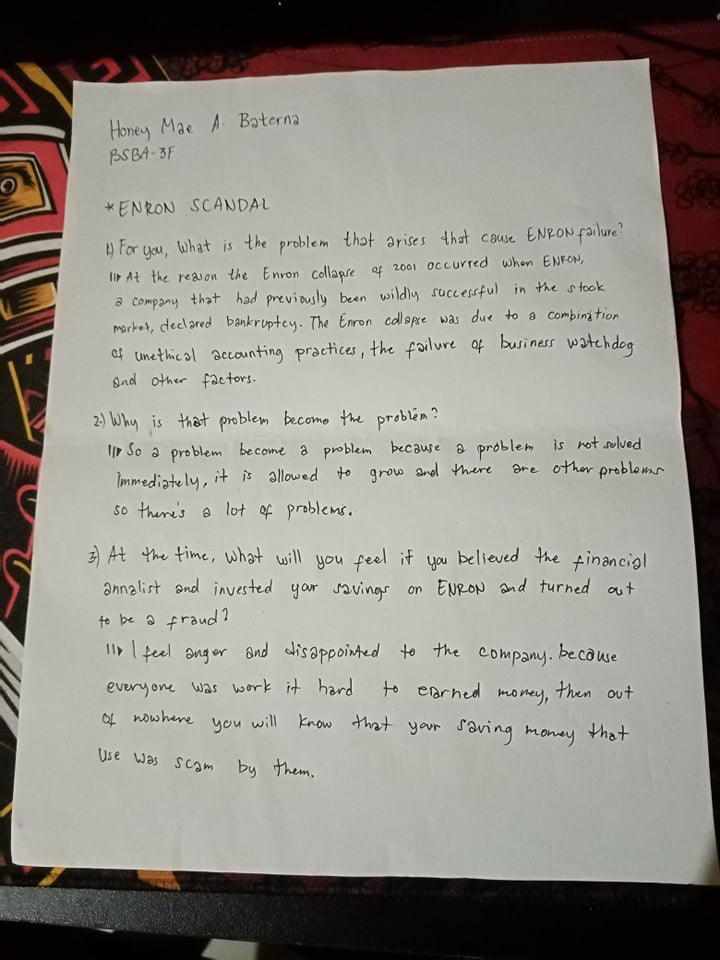 Honey Mae A. Baterna
BSBA-3F
* ENRON SCANDAL
1) For you, What is the problem that arises that cause ENRON failure?
At the reason the Enron collapse of 2001 occurred when ENRON,
a company that had previously been wildly successful in the stock
market, declared bankruptcy. The Enron collapse was due to a combination
of unethical accounting practices, the failure of business watchdog
and other factors.
2.) Why is that problem become the problem?
So a problem become a problem because a problem is not solved
immediately, it is allowed to grow and there are other problems
so there's a lot of problems.
3) At the time, what will you feel if you believed the financial
annalist and invested your savings on ENRON and turned out
to be a fraud?
I feel anger and disappointed to the company. because
everyone was work it hard to earned money, then out
of nowhere you will know that your saving money that
use was scam by them.